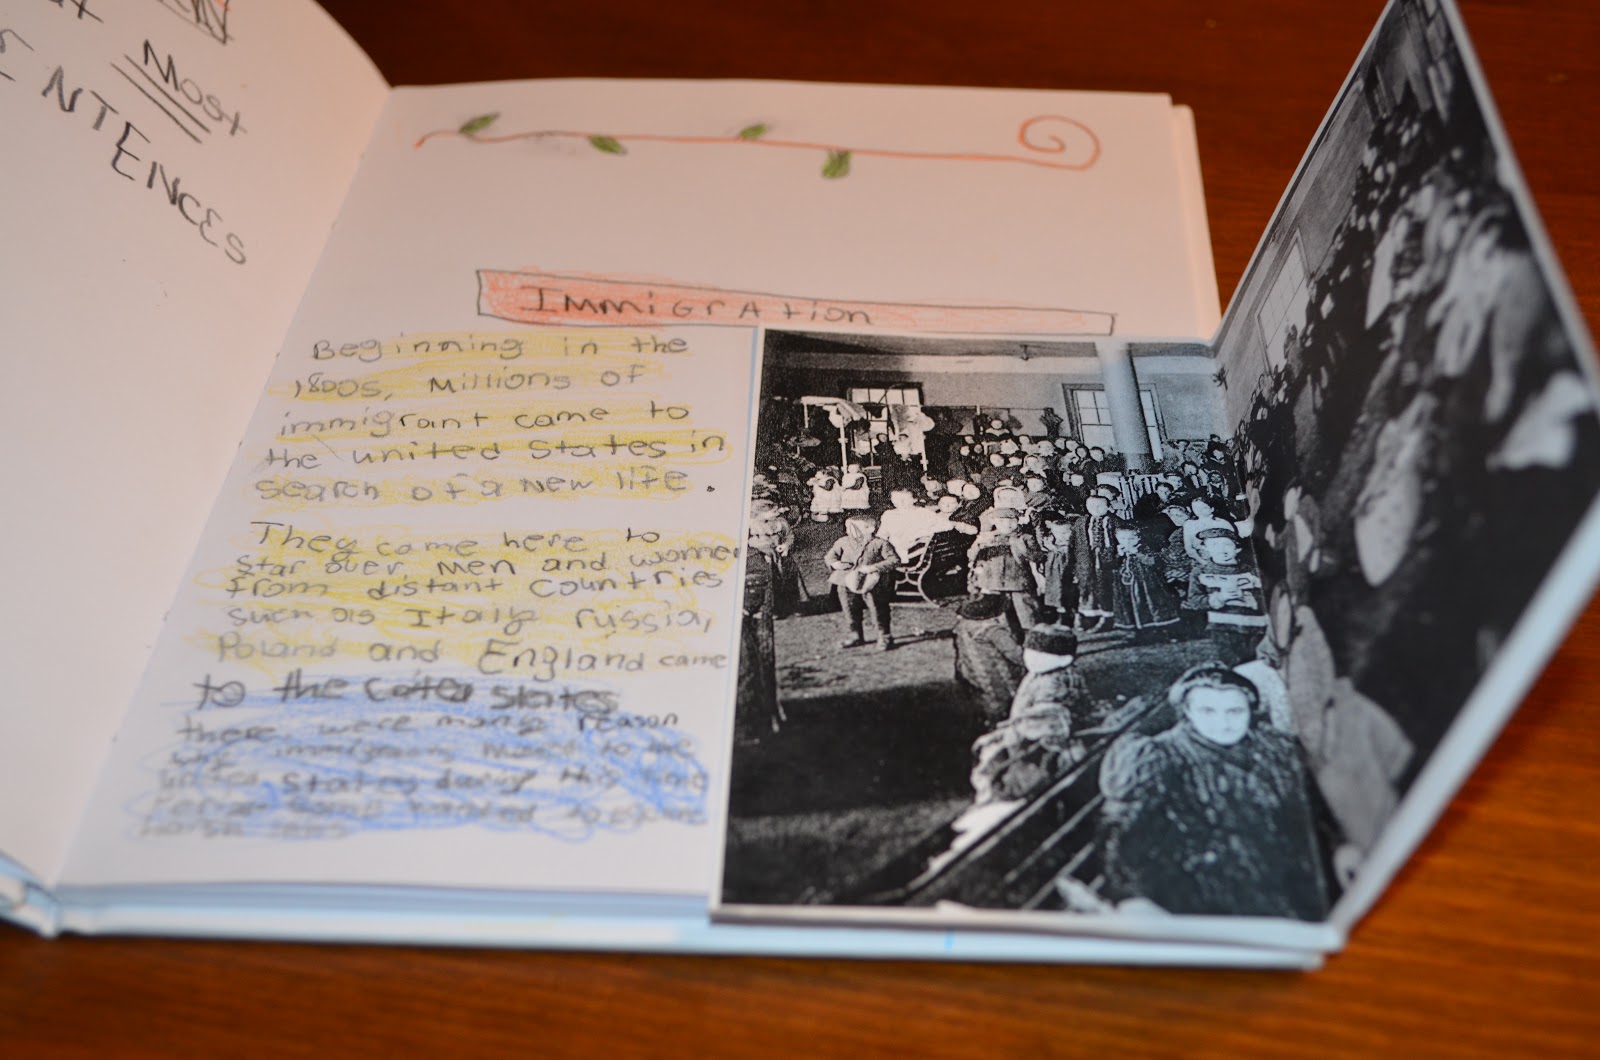 Most
ENTENCES
Immigration
Beginning in the
1800s, Millions of
immigrant came to
the united states in
search of a new life.
They came here to
Star over Men and women
from distant countries
such as Italy russia,
Poland and England came
to the states
there were many reason
why immigrants moved to the
united states during this time